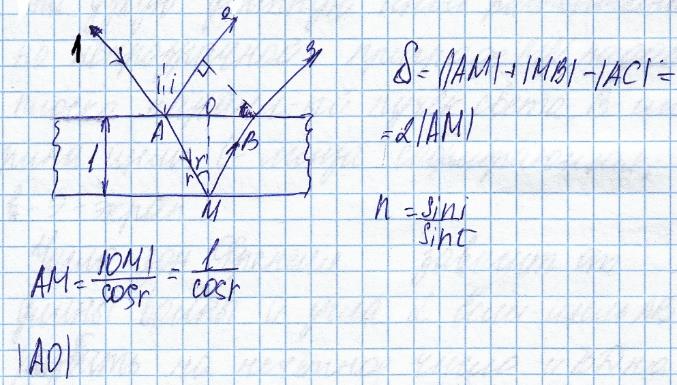 1
2
3
i
i
O
A
B
1
r
r
M
δ = (|AM| + |MB| - |AC| =
= 2|AM|
n = sin i / sin r
AM = |OM| / cos r = 1 / cos r
|AO|